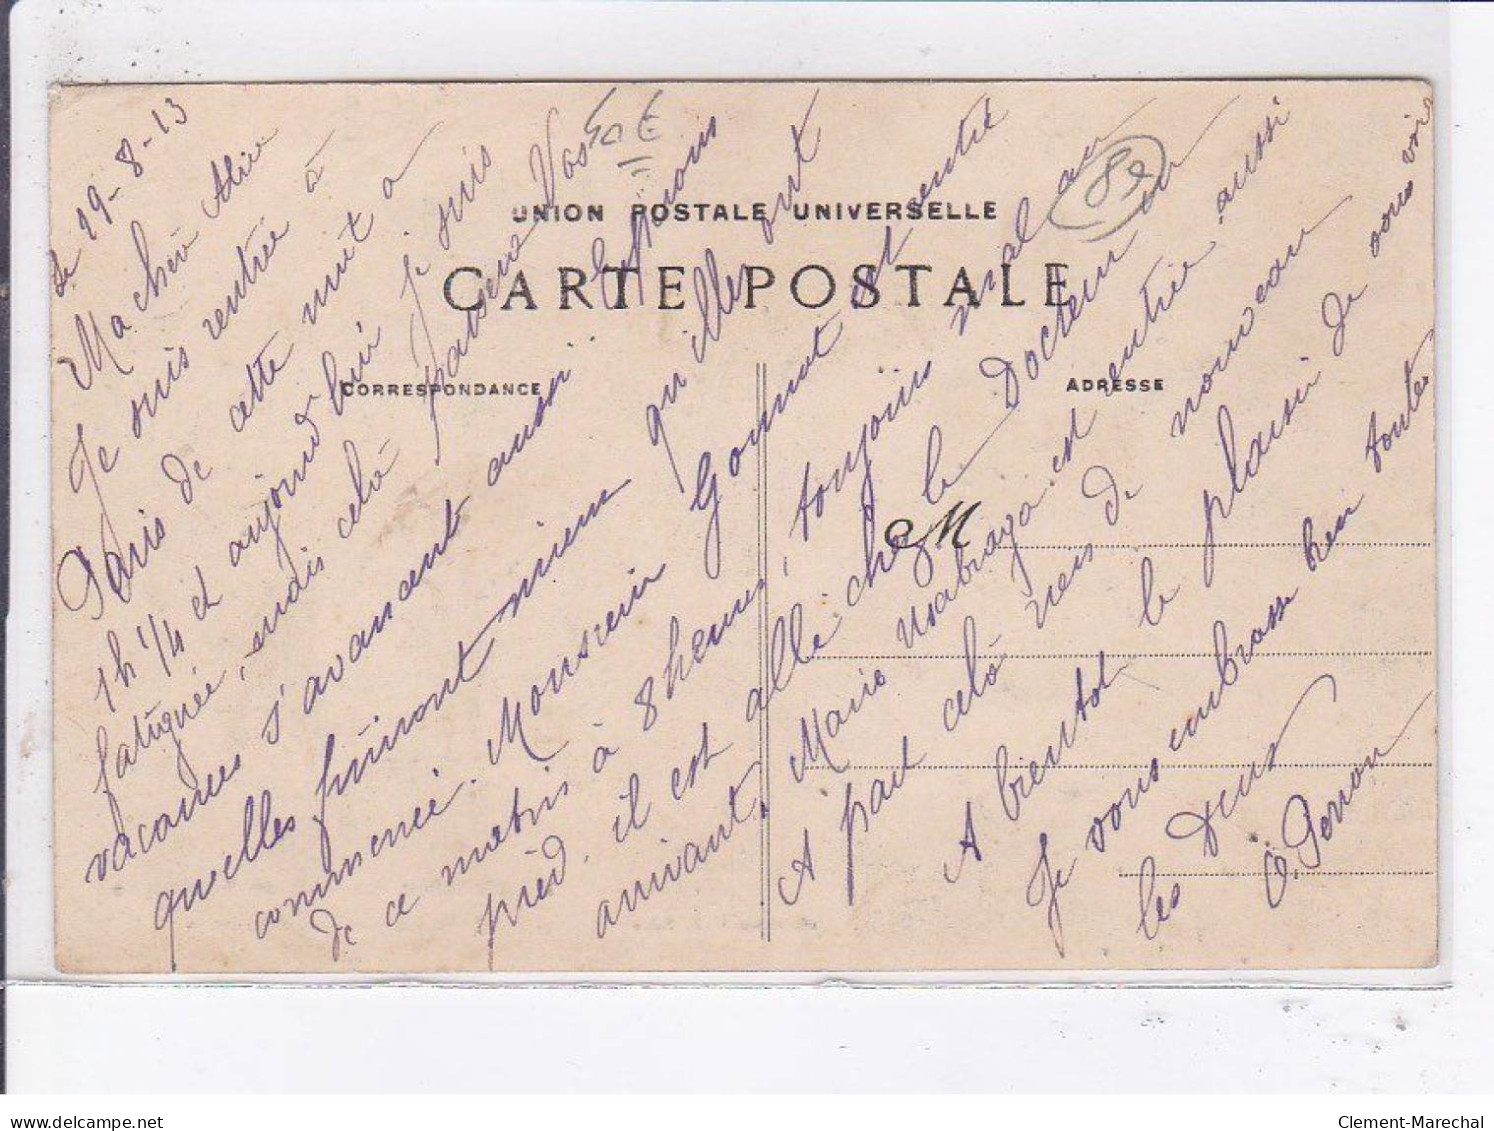 le 19-8-13
Ma chère Alice
Je suis rentrée à
Paris de cette nuit a
1h 1/4 et aujourd'hui je suis
fatiguée, mais celà passera Vos
vacances s'avancent aussi. Espérons
quelles finiront mieux qu'illes ont
commencé. Monsieur Gounot est rentré
de ce matin à 8 heures, toujours mal au
pied. il est allé chez le Docteur en
arrivant. Marie est rentrée aussi
A part celà rien de nouveau
A bientôt le plaisir de vous voir
Je vous embrasse bien toutes
les Deux
50 E
89
UNION POSTALE UNIVERSELLE
CARTE POSTALE
CORRESPONDANCE
ADRESSE
M
delcampe.net
Clement-Marechal